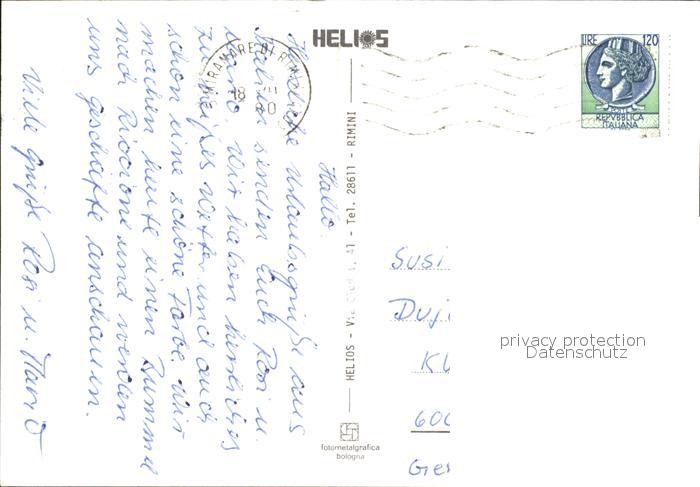 HELIOS
LIRE 120
POSTE
REPVBBLICA
ITALIANA
MIRAMARE DI RIMINI
18
80
Hallo.
Herzliche Urlaubsgrüße aus
Italien senden Euch Rosi u.
Mario. Wir haben herrliches
heißes Wetter und auch
schon eine schöne Farbe. Wir
machen heute einen Bummel
nach Riccione und werden
uns Geschäfte anschauen.
Viele Grüße Rosi u. Mario
HELIOS - 41 - Tel. 28611 - RIMINI
fotometalgrafica
bologna
Susi
privacy protection
Datenschutz
600